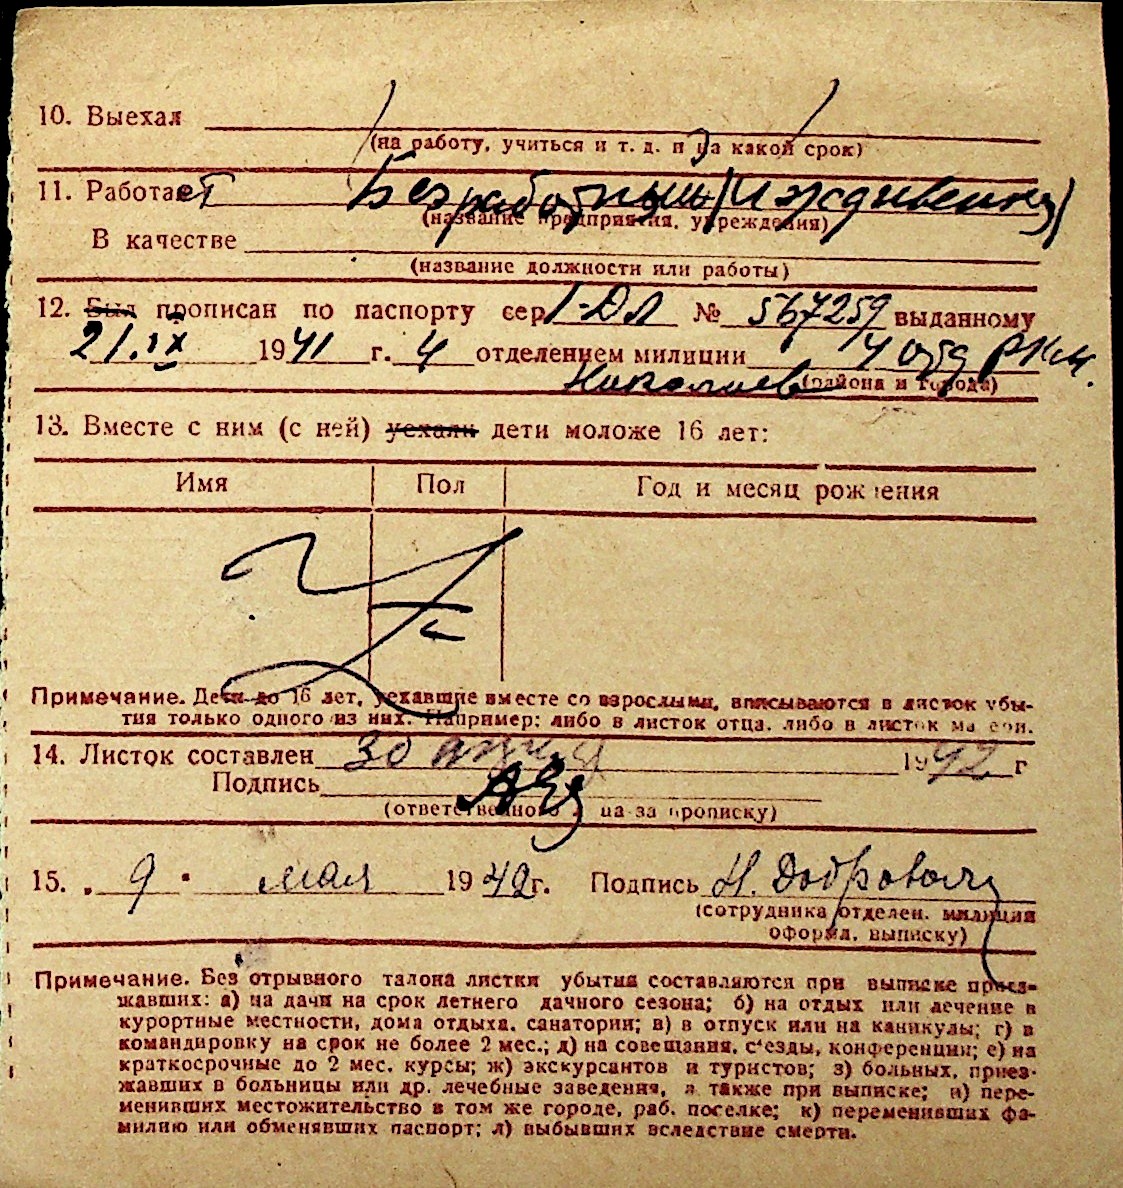 10. Выехал
(на работу, учиться и т. д. и на какой срок)
11. Работает Безработный (Иждивенец)
(название предприятия, учреждения)
В качестве
(название должности или работы)
12. Был прописан по паспорту сер. I-ДЛ № 567259 выданному
21.IX 1941 г. 4 отделением милиции 4 отд РКМ.
Николаев
(района и города)
13. Вместе с ним (с ней) уехали дети моложе 16 лет:
Имя Пол Год и месяц рождения
Примечание. Дети до 16 лет, уехавшие вместе со взрослыми, вписываются в листок убы-
тия только одного из них. Например: либо в листок отца, либо в листок матери.
14. Листок составлен 30 апреля 1942 г
Подпись
(ответственного лица за прописку)
15. 9 мая 1942 г. Подпись
(сотрудника отделен. милиции
оформл. выписку)
Примечание. Без отрывного талона листки убытия составляются при выписке приез-
жавших: а) на дачи на срок летнего дачного сезона; б) на отдых или лечение в
курортные местности, дома отдыха, санатории; в) в отпуск или на каникулы; г) в
командировку на срок не более 2 мес.; д) на совещания, с'езды, конференции; е) на
краткосрочные до 2 мес. курсы; ж) экскурсантов и туристов; з) больных, приез-
жавших в больницы или др. лечебные заведения, а также при выписке; и) пере-
менивших местожительство в том же городе, раб. поселке; к) переменивших фа-
милию или обменявших паспорт; л) выбывших вследствие смерти.